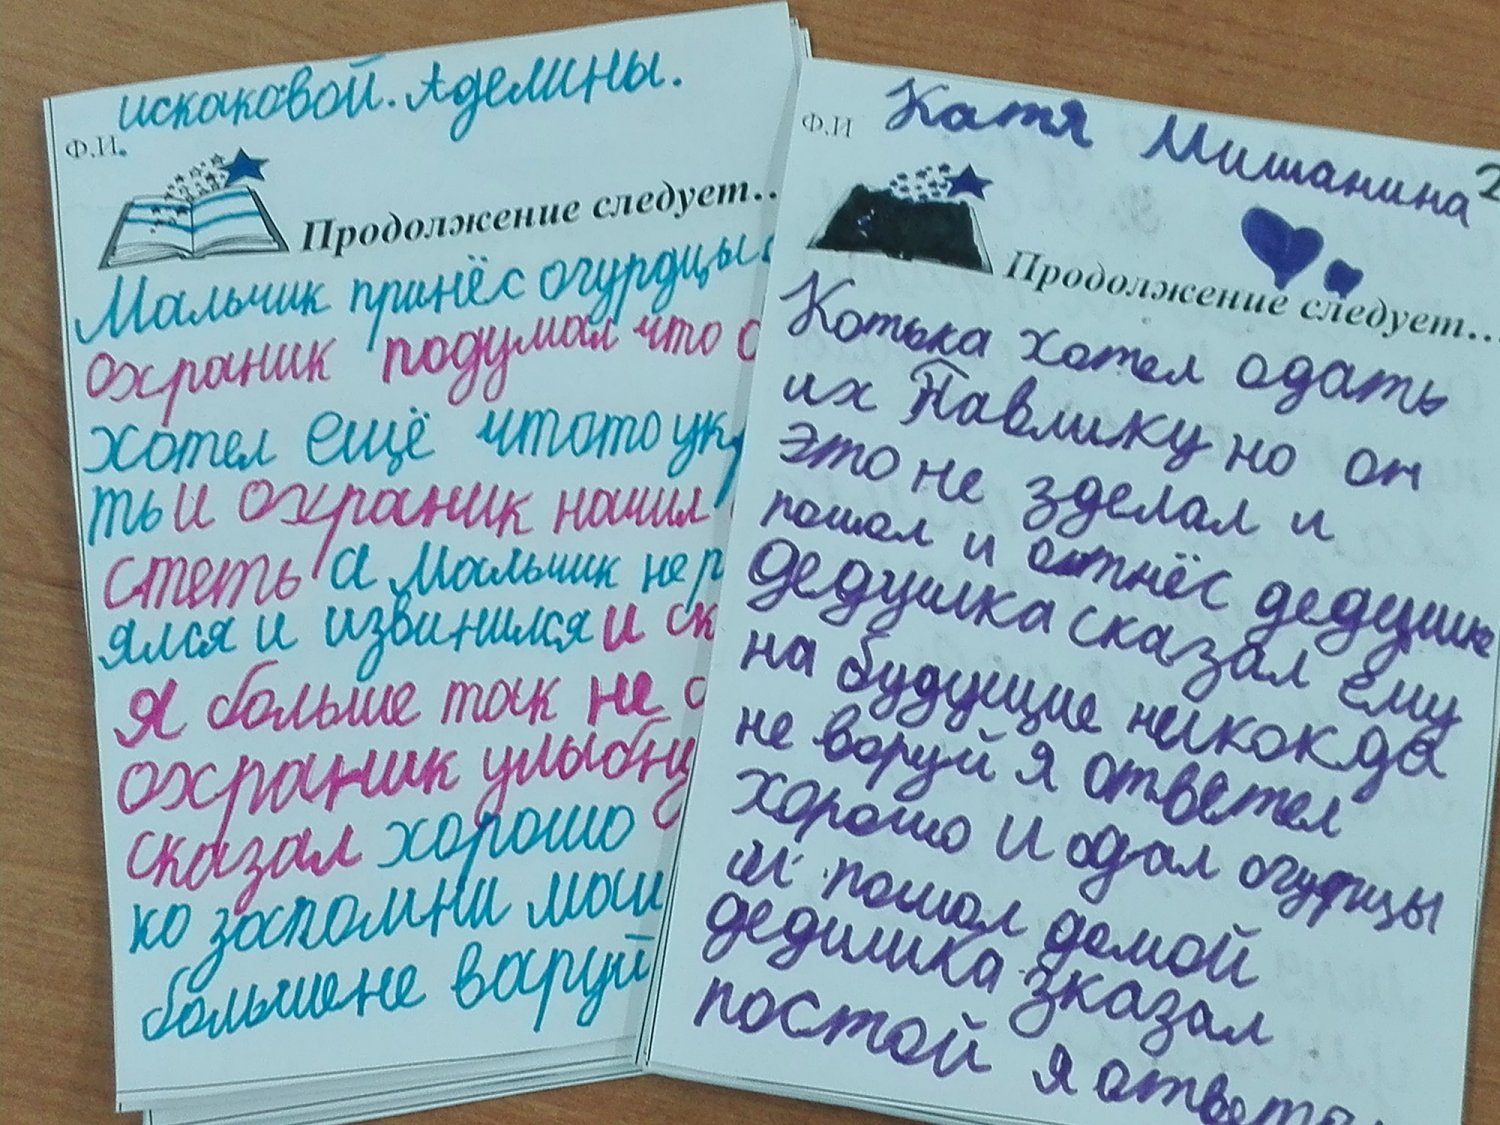 искаковой. Аделины.
Ф.И.
Продолжение следует...
Мальчик принёс огурдцы
охраник подумал что
хотел ещё чтото ук
ть и охраник начил
стеть а Мальчик не
ялся и извинился и ск
я больше так не
охраник улыбну
сказал хорошо
ко запомни
большене варуй
Ф.И
Катя Мишанина
2
Продолжение следует...
Котька хотел одать
их Павлику но он
это не зделал и
пошол и отнёс дедушке
дедушка сказал ему
на будущие некокда
не варуй я ответел
хорошо и одал огурцы
и пошол домой
дедишка зказал
постой я ответ